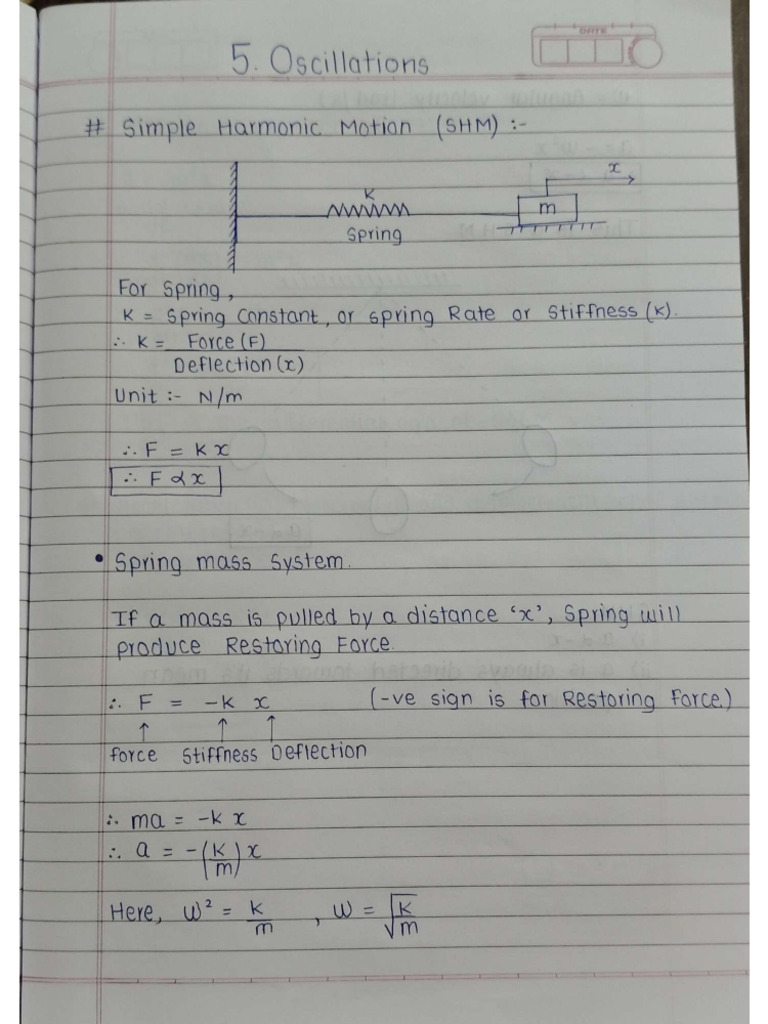 DATE
5. Oscillations
# Simple Harmonic Motion (SHM) :-
x
K
m
Spring
For Spring,
K = Spring Constant, or spring Rate or Stiffness (K).
∴ K = Force (F)
Deflection (x)
Unit :- N/m
∴ F = K x
∴ F α x
• Spring mass System.
If a mass is pulled by a distance 'x', Spring will
produce Restoring Force.
∴ F = -K x (-ve sign is for Restoring Force.)
↑ ↑ ↑
force Stiffness Deflection
∴ ma = -K x
∴ a = -(K/m) x
Here, W² = K/m , W = √K/m